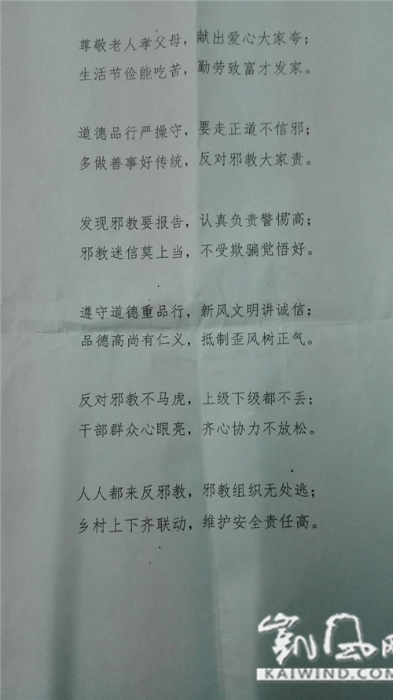 尊敬老人孝父母，献出爱心大家夸；
生活节俭能吃苦，勤劳致富才发家。
道德品行严操守，要走正道不信邪；
多做善事好传统，反对邪教大家责。
发现邪教要报告，认真负责警惕高；
邪教迷信莫上当，不受欺骗觉悟好。
遵守道德重品行，新风文明讲诚信；
品德高尚有仁义，抵制歪风树正气。
反对邪教不马虎，上级下级都不丢；
干部群众心眼亮，齐心协力不放松。
人人都来反邪教，邪教组织无处逃；
乡村上下齐联动，维护安全责任高。
凯风网
KAIWIND.COM